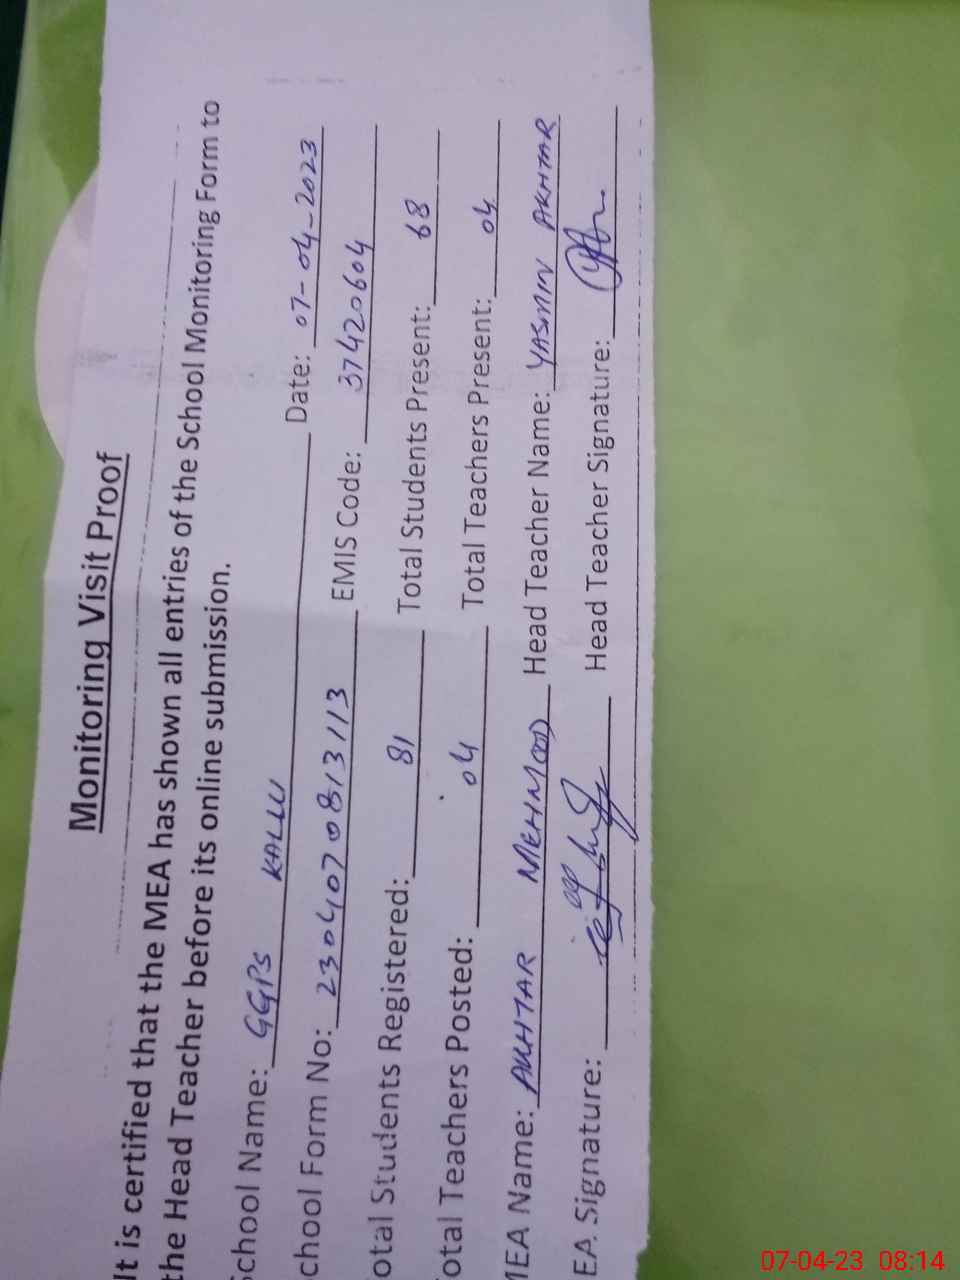 Monitoring Visit Proof
It is certified that the MEA has shown all entries of the School Monitoring Form to
the Head Teacher before its online submission.
School Name: GGPS KALLU Date: 07-04-2023
chool Form No: 2304070813113 EMIS Code: 37420604
otal Students Registered: 81 Total Students Present: 68
otal Teachers Posted: 04 Total Teachers Present: 04
MEA Name: AKHTAR MEHMOOD Head Teacher Name: YASMIN AKHTAR
EA Signature: Head Teacher Signature:
07-04-23 08:14